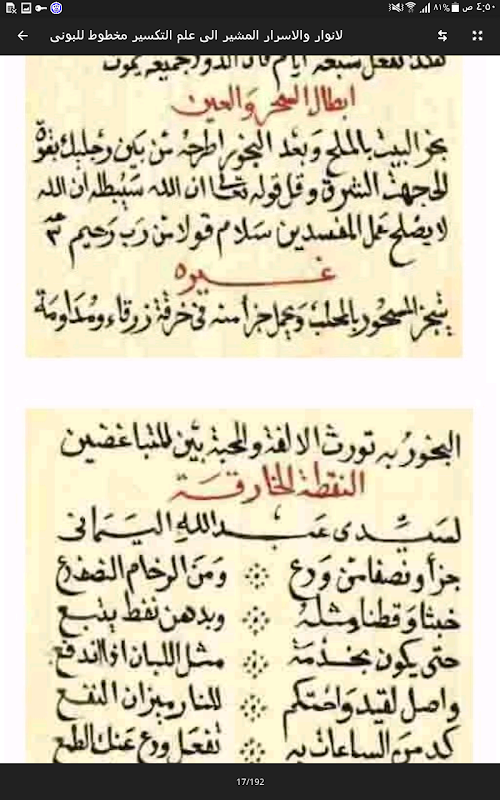 ٤:٥٠ ص ٨١%
لانوار والاسرار المشير الى علم التكسير مخطوط للبونى
تفعل سبعة ايام فان الدور جميعه يموت
ابطال السحر والعين
بخر البيت بالملح وبعد البخور اطرحه من بين رجليك بقوة
لجهت الشرق وقل قوله تعالى ان الله سيبطله ان الله
لا يصلح عمل المفسدين سلام قولا من رب رحيم
غيره
يتبخر المسحور بالمحلب وتحمل جزأ منه فى خرقة زرقاء ومداومة
البخور به تورث الالفة والمحبة بين المتباغضين
النقطة الخارقة
لسيدى عبد الله اليمانى
جزأ ونصفا من ودع ومن الرخام الضفدع
خبثا وقطنا مثله وبدهن نفط يتبع
حتى يكون بخدمة مثل اللبان اذا اندفع
واصل لقيد واحتكم للنار ميزان النفع
كد من الساعات به تفعل ودع عنك الطمع
17/192